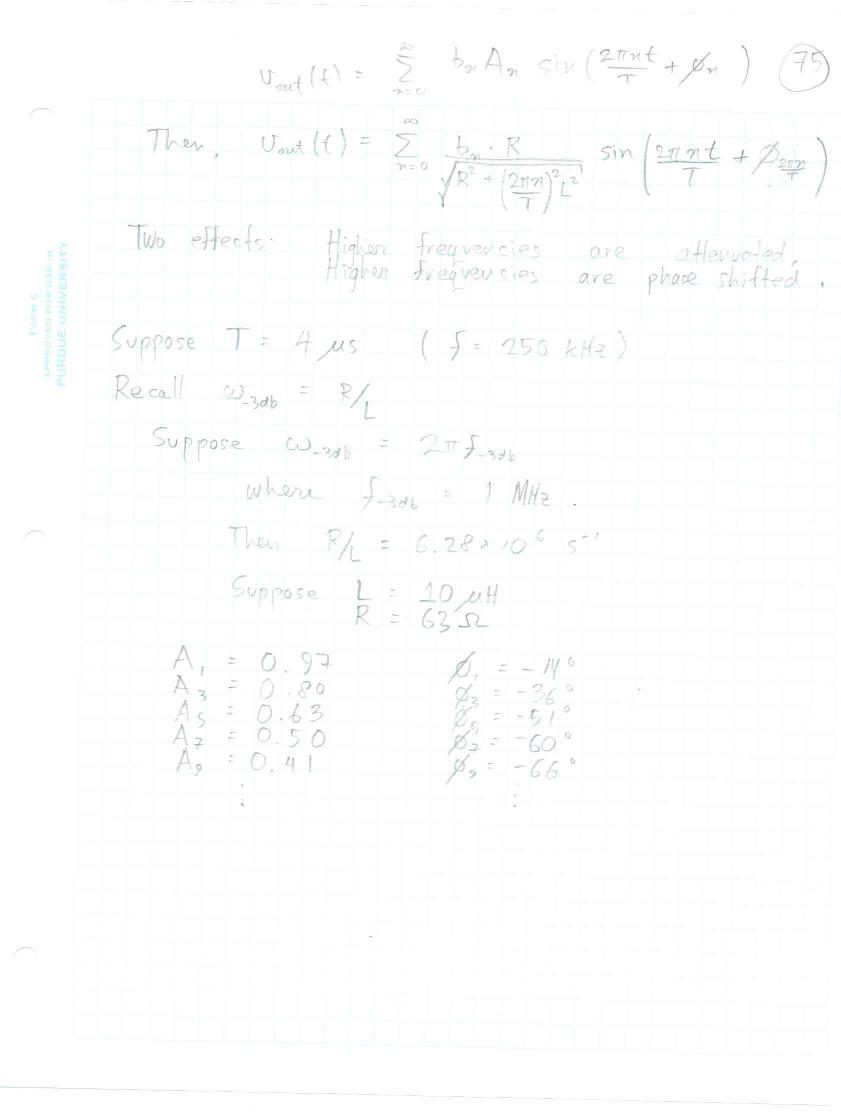 v_out(t) = ∑_{n=0}^{∞} b_n A_n sin(2πnt/T + ϕ_n) 75
Then, v_out(t) = ∑_{n=0}^{∞} b_n · R / √(R² + (2πn/T)² L²) sin(2πnt/T + ϕ_{2πn/T})
Two effects: Higher frequencies are attenuated,
Higher frequencies are phase shifted.
FORM C
APPROVED FOR USE IN
PURDUE UNIVERSITY
Suppose T = 4 μs (f = 250 kHz)
Recall ω_-3db = R/L
Suppose ω_-3db = 2π f_-3db
where f_-3db = 1 MHz.
Then R/L = 6.28 x 10^6 s^-1
Suppose L = 10 μH
R = 63 Ω
A_1 = 0.97 ϕ_1 = -14°
A_3 = 0.80 ϕ_3 = -36°
A_5 = 0.63 ϕ_5 = -51°
A_7 = 0.50 ϕ_7 = -60°
A_9 = 0.41 ϕ_9 = -66°
⋮ ⋮